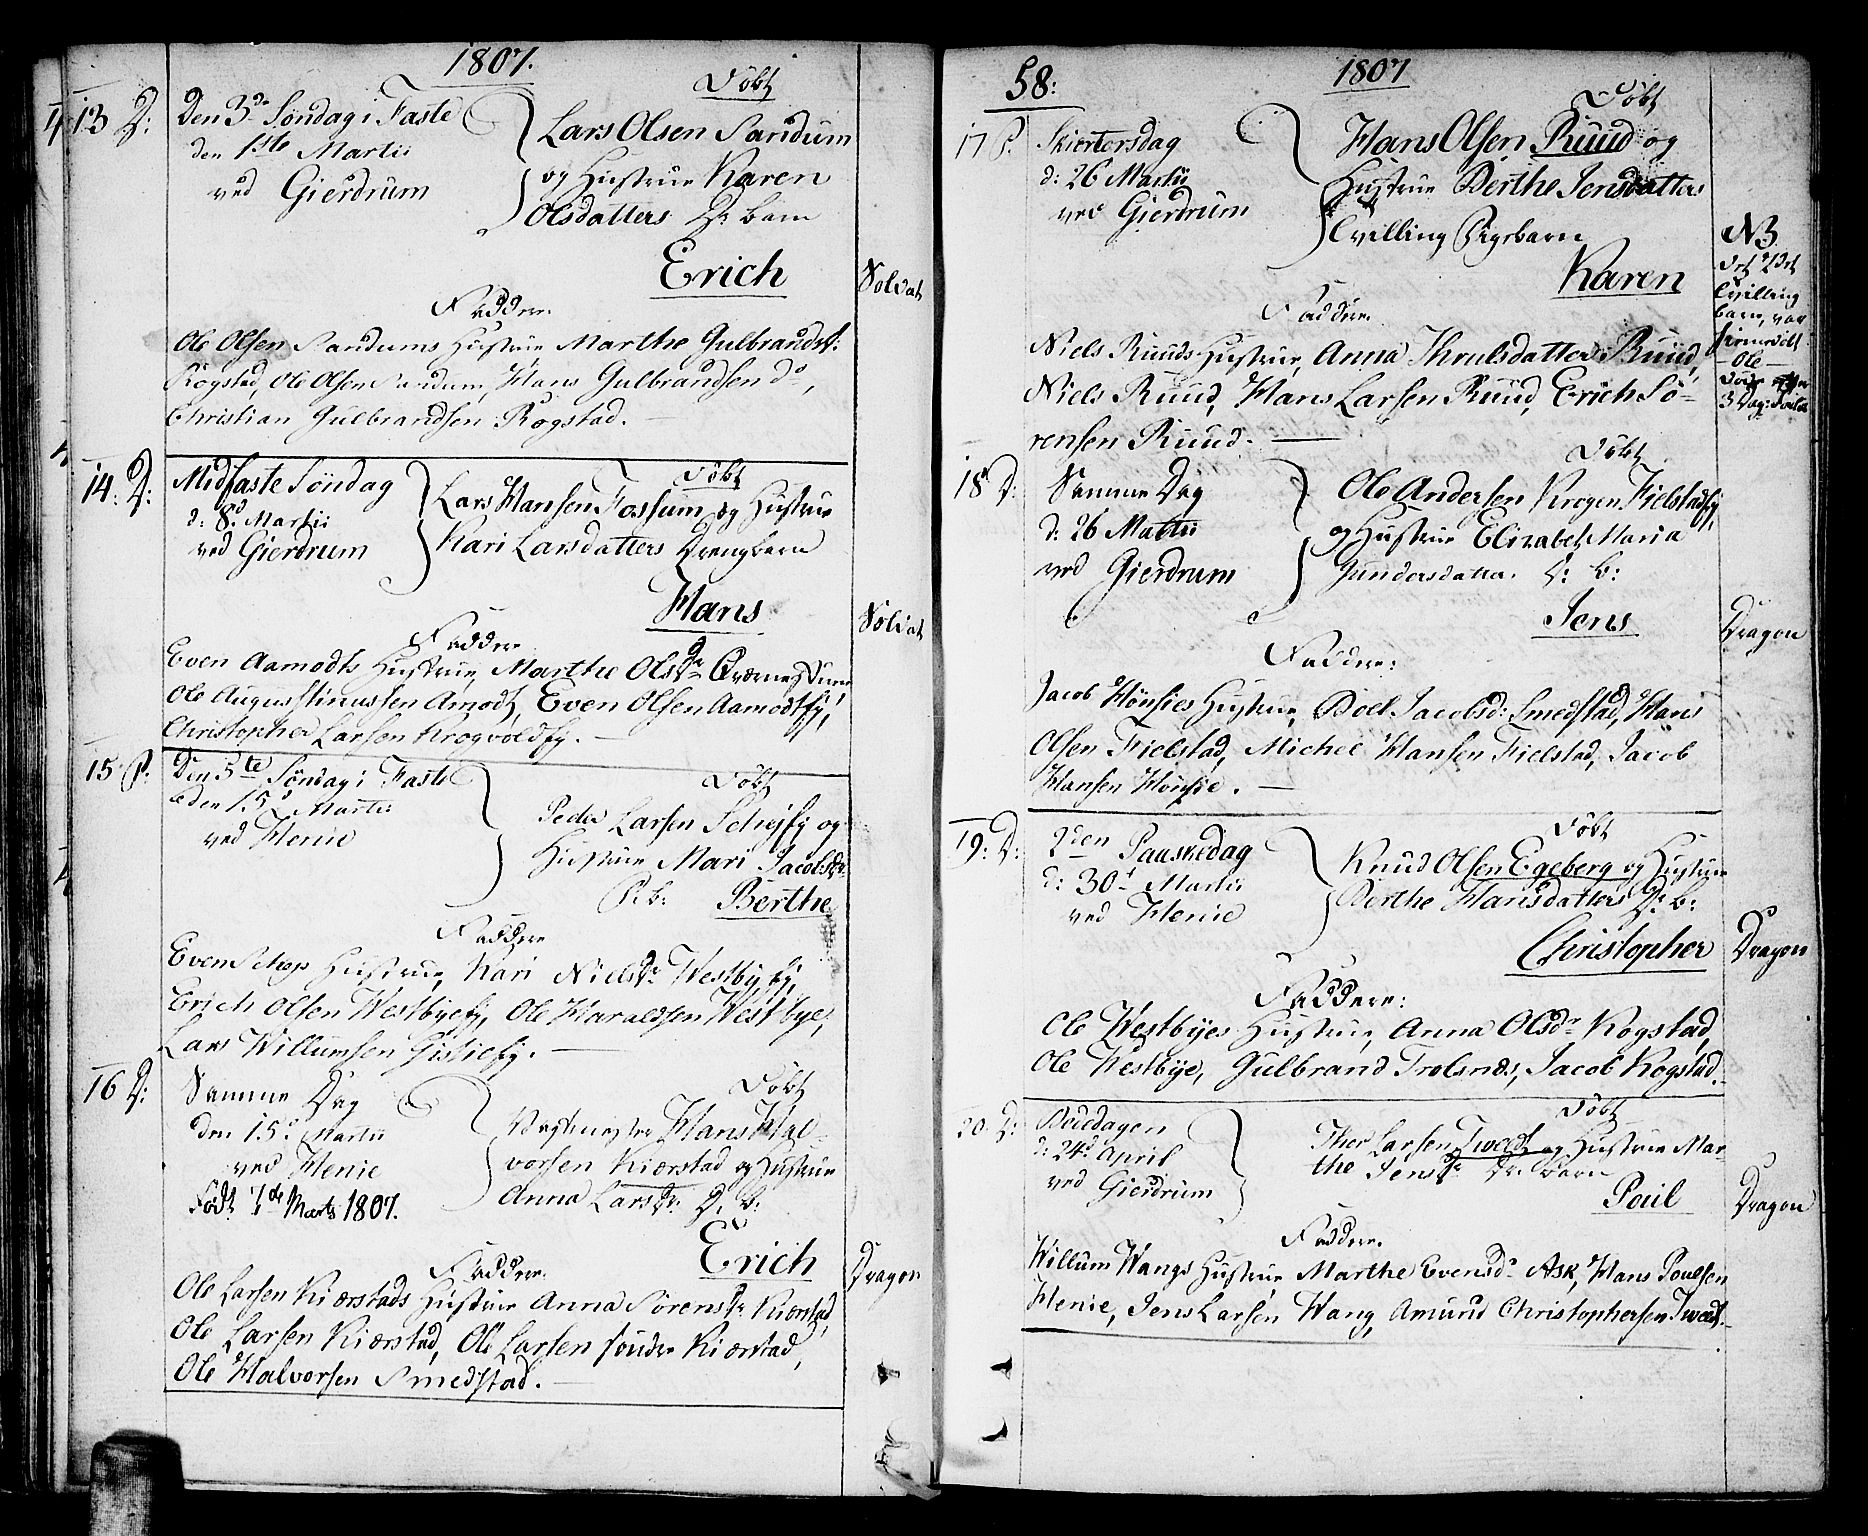 1807.
13 D: Den 3de Søndag i Faste
den 1ste Martii
ved Gierdrum
Døbt
Lars Olsen Sandum
og Hustrue Karen
Olsdatters D: barn
Erich
Soldat
Faddere
Ole Olsen Sandums Hustrue, Marthe Gulbrandsd:
Rogstad, Ole Olsen Sandum, Hans Gulbrandsen do,
Christian Gulbrandsen Rogstad.
14. D: Midfaste Søndag
d: 8de Martii
ved Gierdrum
Døbt
Lars Hansen Fossum og Hustrue
Kari Larsdatters Drengbarn
Hans
Soldat
Faddere
Even Aamodts Hustrue, Marthe Olsdr
Ole Augustinussen Amodt, Even Olsen Aamodtfy,
Christopher Larsen Krogvoldfy.
15 P. Den 5te Søndag i Faste
den 15de Martii
ved Henie
Døbt
Peder Larsen Schejfy og
Hustrue Mari Jacobsdr
P: b: Berthe
Faddere
Even Hustrue, Kari Nielsdr Westbyfy,
Erich Olsen Westbyefy, Ole Haraldsen Westbye,
Lars Willumsen
16 D: Samme Dag
den 15de Martii
ved Henie
Født 7de Marts 1807.
Døbt
Hans Hal-
vorsen Kiærstad og Hustrue
Anna Larsdr: D. b:
Erich
Dragon
Faddere:
Ole Larsen Kiærstads Hustrue Anna Sørensdr Kiærstad,
Ole Larsen Kiærstad, Ole Larsen søndre Kiærstad,
Ole Halvorsen Smedstad.
58: 1807
17 P. Skiertorsdag
d: 26 Martii
ved Gierdrum
Døbt
Hans Olsen Ruud og
Hustrue Berthe Jensdatters
Tvilling Pigebarn
Karen
NB
Det 2det
Tvilling
barn, var
hiemdøbt
Ole
døde efter
3 Dage
Faddere
Niels Ruuds Hustrue, Anna Thrulsdatter Ruud,
Niels Ruud, Hans Larsen Ruud, Erich Sö-
rensen Ruud.
18 D: Samme Dag
d: 26 Martii
ved Gierdrum
Døbt
Ole Andersen Krogen Fielstadfy,
og Hustrue Elizabet Maria
Gundersdatter. D: b:
Jens
Dragon
Faddere:
Jacob Hönsies Hustrue, Boel Jacobsd: Smedstad, Hans
Olsen Fielstad, Michel Hansen Fielstad, Jacob
Hansen Hönsie.
19: D: 2den Paaskedag
d: 30te Martii
ved Henie
Døbt
Knud Olsen Egeberg og Hustrue
Berthe Hansdatters D: b:
Christopher
Dragon
Faddere:
Ole Westbyes Hustrue, Anna Olsdr Rogstad,
Ole Westbye, Gulbrand Trolsnes, Jacob Rogstad.
20. D: Bededagen
d: 24de April
ved Gierdrum
Døbt
Thor Larsen Tweet og Hustrue Mar-
the Jensdr Dr: barn
Poul
Dragon
Faddere.
Willum Wangs Hustrue Marthe Evensdr Ask, Hans Poulsen
Henie, Jens Larsen Wang, Amund Christophersen Tweet.